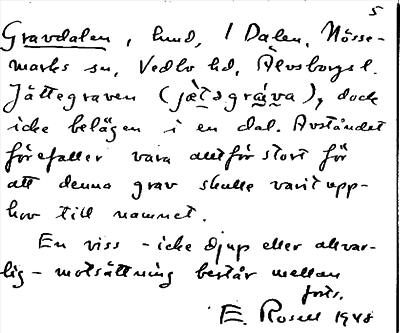 5
Gravdalen, hmd, 1 Dalen, Nösse-
marks sn, Vedbo hd, Älvsborgs l.
Jättegraven (jætəgrava), dock
icke belägen i en dal. Avståndet
förefaller vara alltför stort för
att denna grav skulle varit upp-
hov till namnet.
En viss - icke djup eller allvar-
lig - motsättning består mellan
forts.
E. Rosell 1948